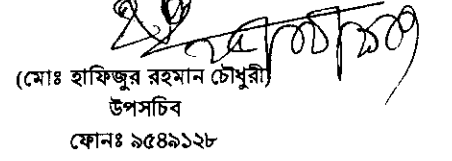 (মোঃ হাফিজুর রহমান চৌধুরী)
উপসচিব
ফোনঃ ৯৫৪৯১২৮